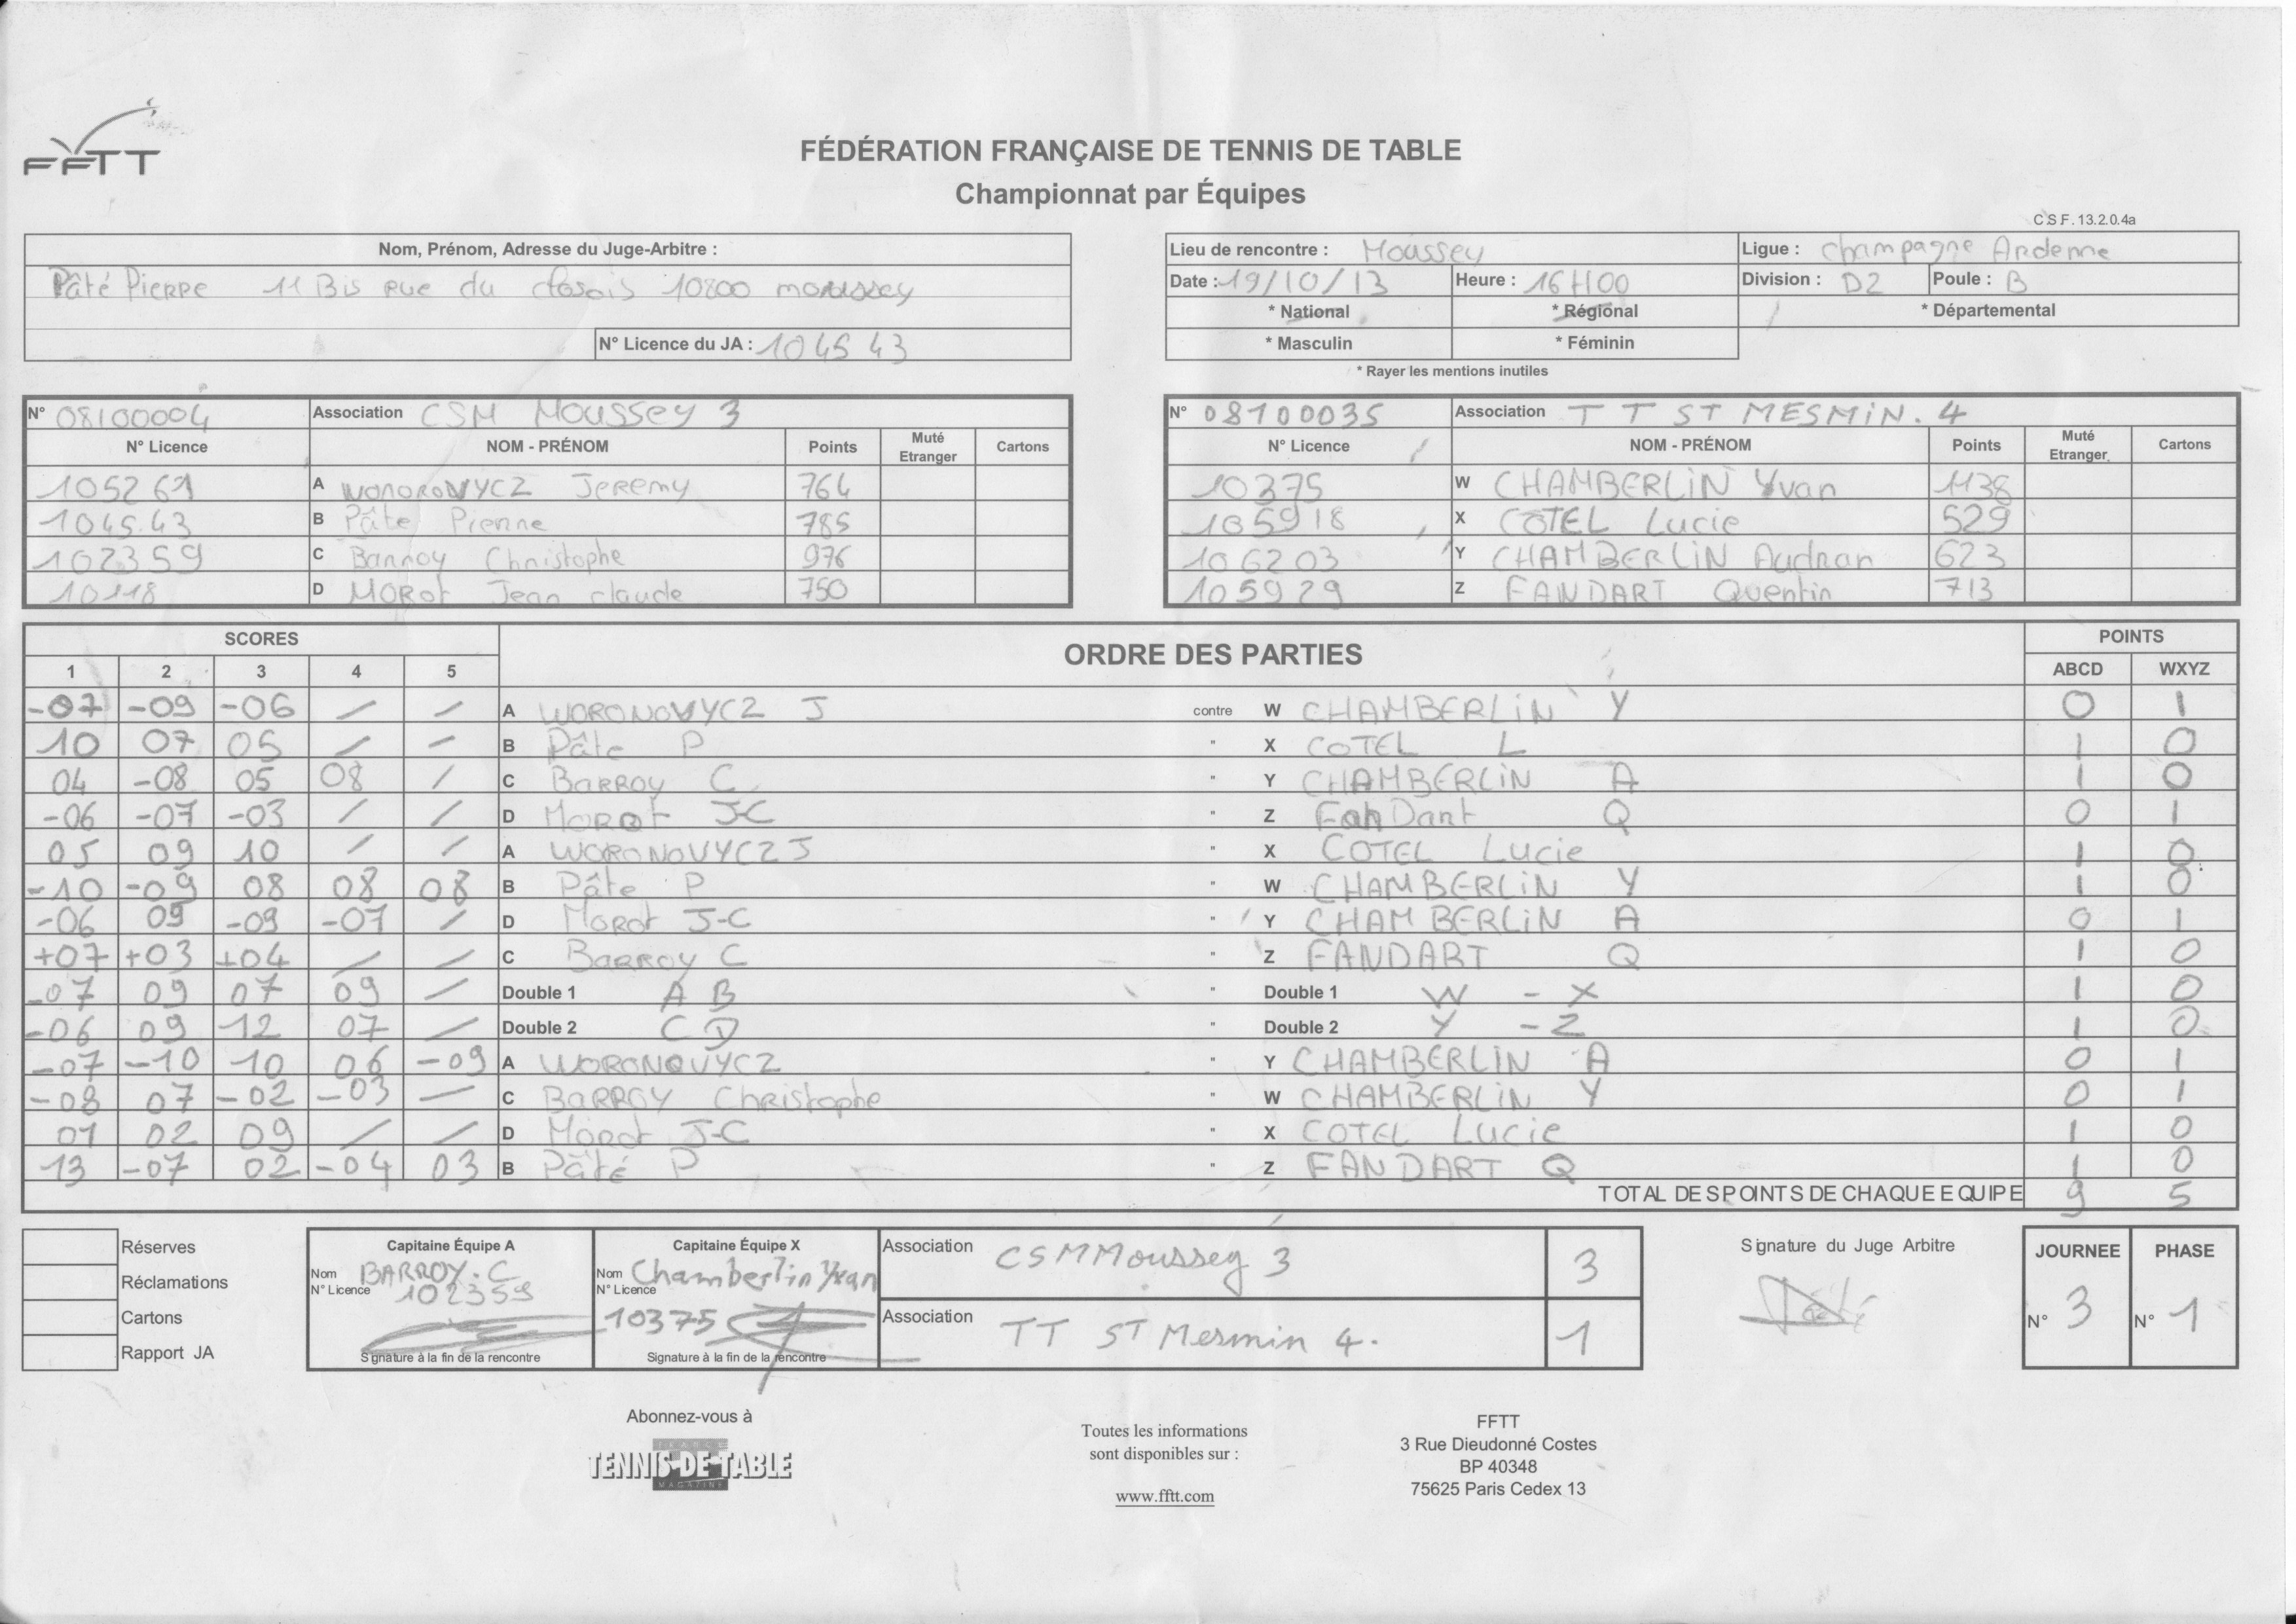 FFTT
FÉDÉRATION FRANÇAISE DE TENNIS DE TABLE
Championnat par Équipes
C S F. 13.2.0.4a
Nom, Prénom, Adresse du Juge-Arbitre :
Pâté Pierre 11 Bis rue du 10800 moussey
N° Licence du JA : 1045 43
Lieu de rencontre : Moussey Ligue : Champagne Ardenne
Date : 19/10/13 Heure : 16H00 Division : D2 Poule : B
* National * Régional * Départemental
* Masculin * Féminin
* Rayer les mentions inutiles
N° 08100004 Association CSM Moussey 3
N° Licence NOM - PRÉNOM Points Muté Etranger Cartons
105261 A WOROROVYCZ Jeremy 764
1045.43 B Pâte Pierre 785
102359 C Barroy Christophe 976
10118 D MOROT Jean claude 750
N° 08100035 Association T T ST MESMiN. 4
N° Licence NOM - PRÉNOM Points Muté Etranger Cartons
10375 W CHAMBERLiN Yvan 1138
105918 X COTEL Lucie 529
106203 Y CHAMBERLiN Audran 623
105929 Z FANDART Quentin 713
SCORES ORDRE DES PARTIES POINTS
1 2 3 4 5 ABCD WXYZ
-07 -09 -06 / / A WORONOVYCZ J contre W CHAMBERLiN Y 0 1
10 07 05 / / B Pâte P " X COTEL L 1 0
04 -08 05 08 / C BARROY C. " Y CHAMBERLiN A 1 0
-06 -07 -03 / / D MOROT J-C " Z FanDant Q 0 1
05 09 10 / / A WORONOVYCZ J " X COTEL Lucie 1 0
-10 -09 08 08 08 B Pâte P " W CHAMBERLiN Y 1 0
-06 09 -09 -07 / D Morot J-C " Y CHAMBERLiN A 0 1
+07 +03 +04 / / C BARROY C " Z FANDART Q 1 0
-07 09 07 09 / Double 1 A B " Double 1 W - X 1 0
-06 09 12 07 / Double 2 C D " Double 2 Y - Z 1 0
-07 -10 10 06 -09 A WORONOVYCZ " Y CHAMBERLiN A 0 1
-08 07 -02 -03 / C BARROY Christophe " W CHAMBERLiN Y 0 1
01 02 09 / / D Morot J-C " X COTEL Lucie 1 0
13 -07 02 -04 03 B Pâté P " Z FANDART Q 1 0
TOTAL DES POINTS DE CHAQUE EQUIPE 9 5
Réserves
Réclamations
Cartons
Rapport JA
Capitaine Équipe A
Nom BARROY. C
N° Licence 102359
Signature à la fin de la rencontre
Capitaine Équipe X
Nom Chamberlin Yvan
N° Licence
10375
Signature à la fin de la rencontre
Association CSMMoussey 3 3
Association TT ST Mesmin 4. 1
Signature du Juge Arbitre
JOURNEE PHASE
N° 3 N° 1
Abonnez-vous à
FRANCE
TENNIS-DE-TABLE
MAGAZINE
Toutes les informations
sont disponibles sur :
www.fftt.com
FFTT
3 Rue Dieudonné Costes
BP 40348
75625 Paris Cedex 13